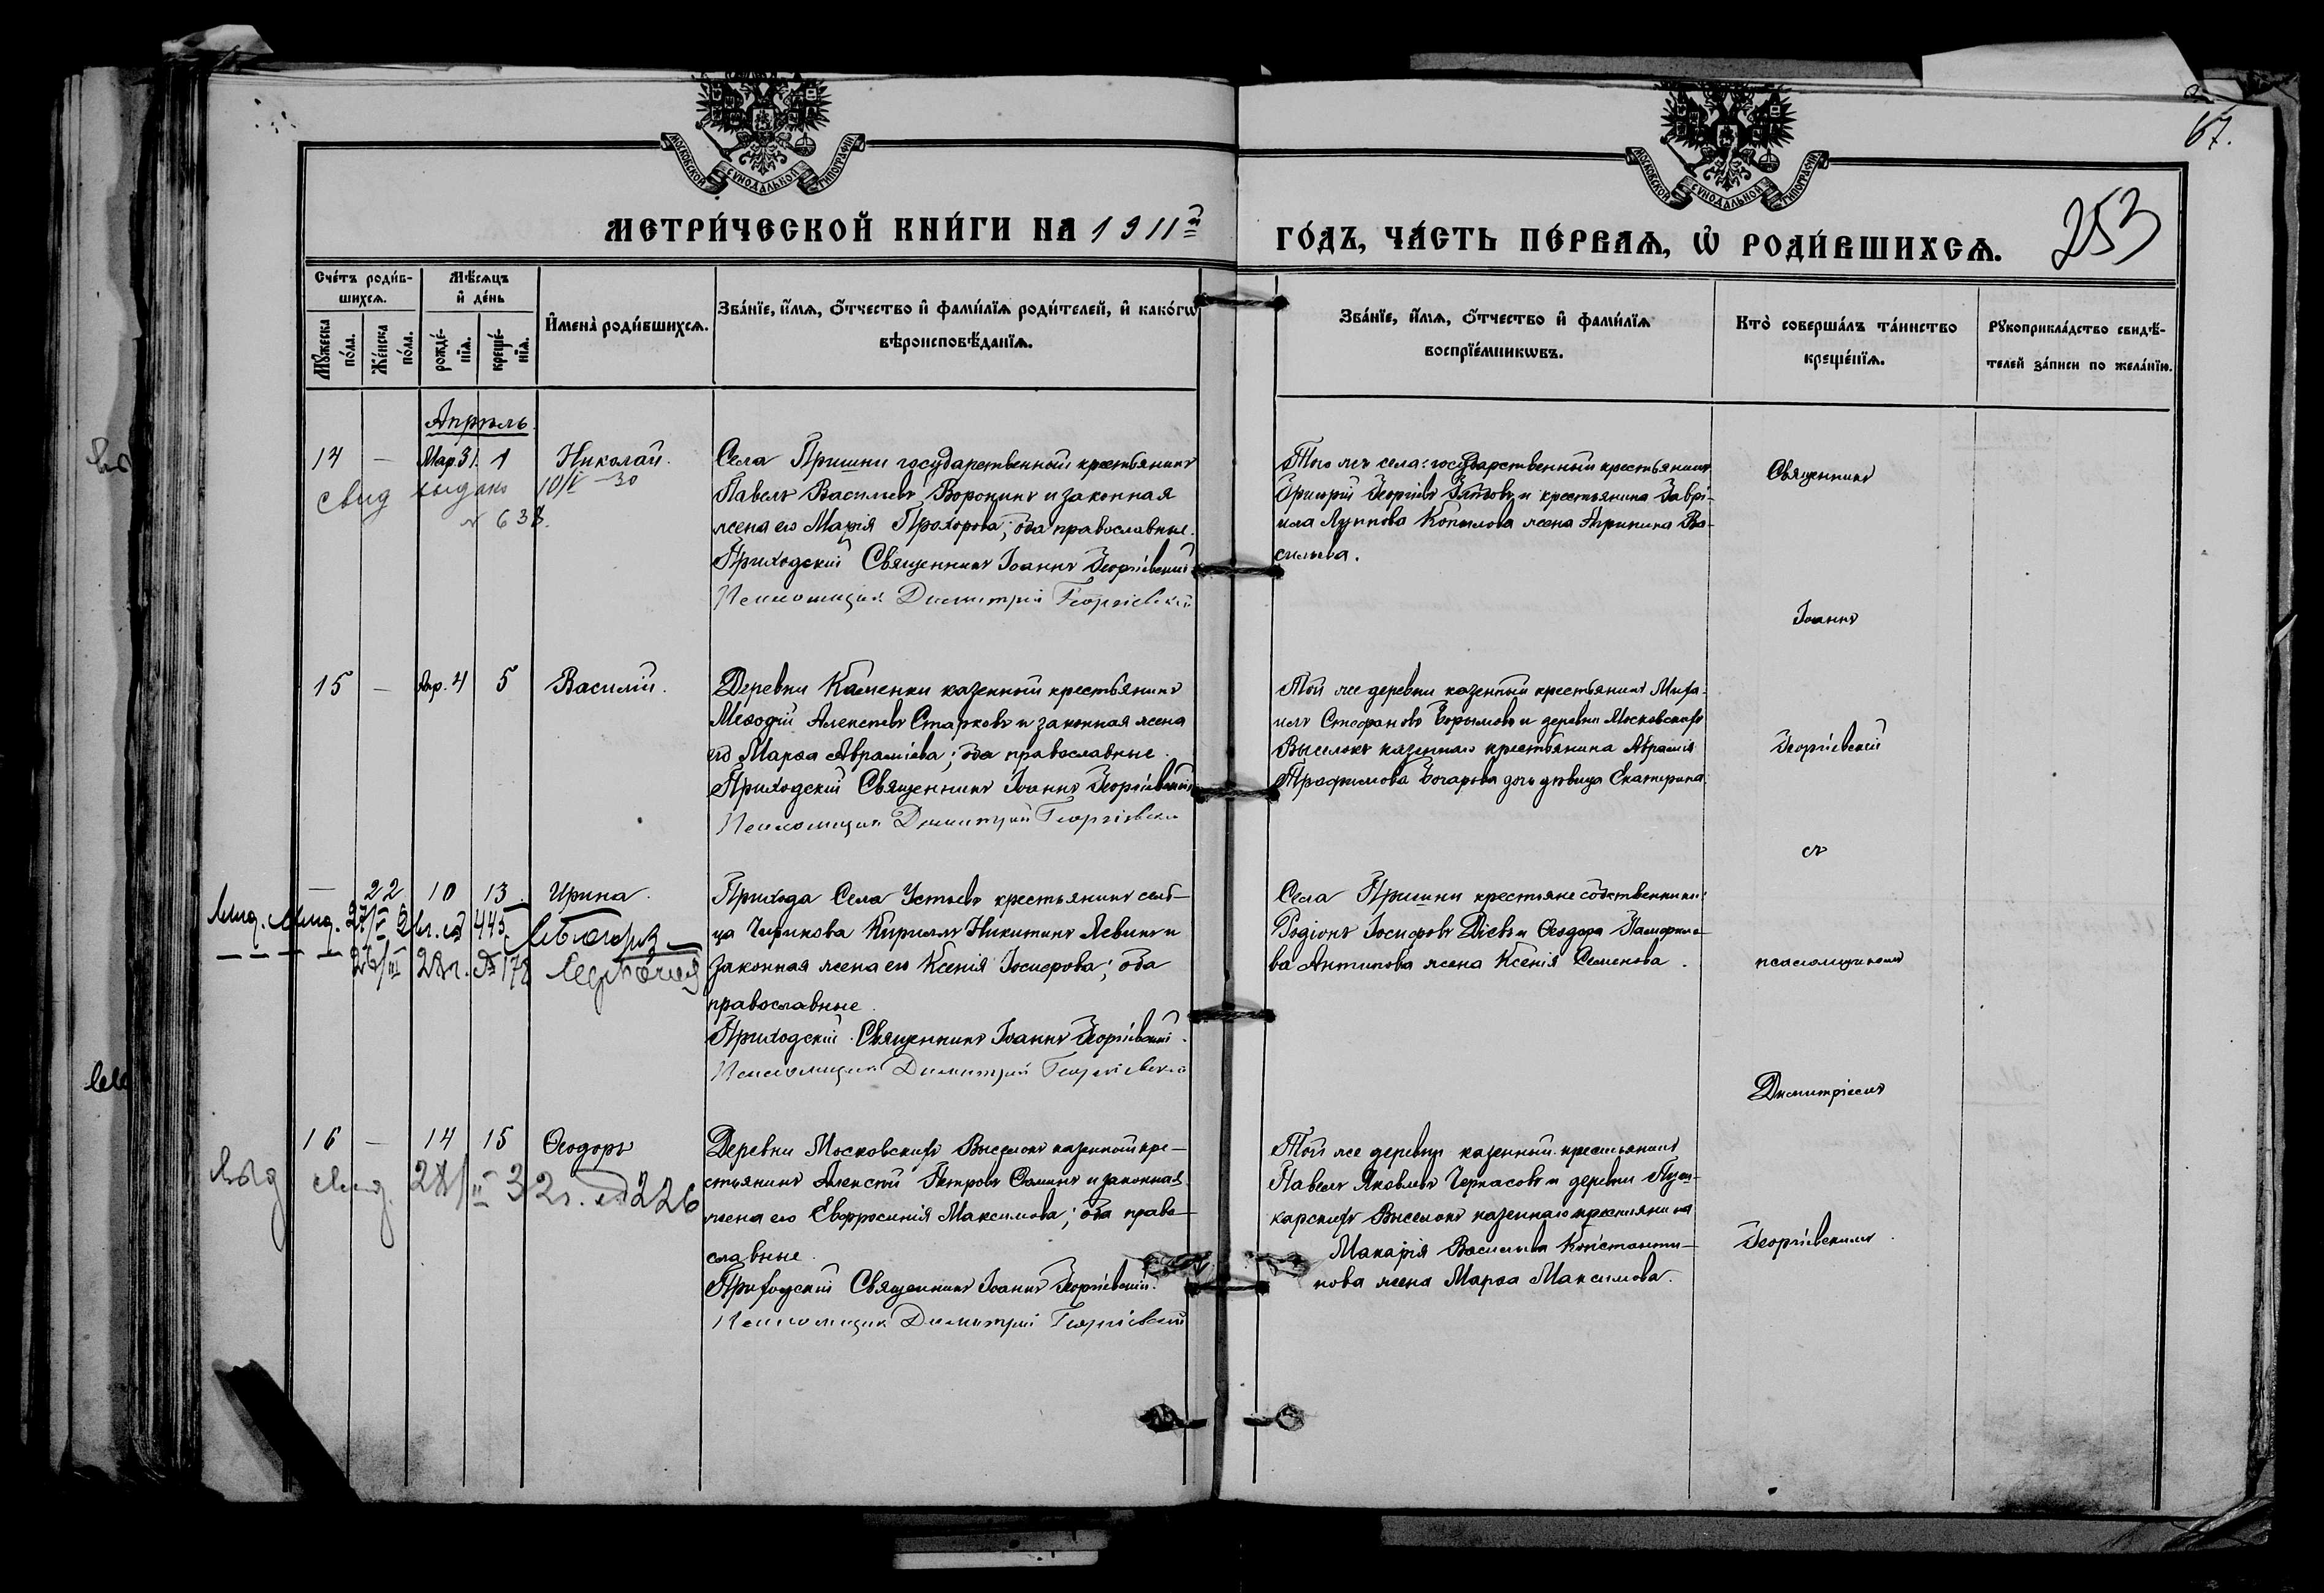 67.
МОСКОВСКОЙ СУНОДАЛЬНОЙ ТИПОГРАФИИ
МОСКОВСКОЙ СУНОДАЛЬНОЙ ТИПОГРАФИИ
МЕТРИ́ЧЕСКОЙ КНИ́ГИ НА 1911й
ГО́ДЪ, ЧА́СТЬ ПЕ́РВАѦ, Ѡ РОДИ́ВШИХСѦ.
253
Сче́тъ роди́в-
шихсѧ.
Мꙋжеска
по́ла.
Же́нска
по́ла.
Мѣ́сѧцъ
и де́нь
рожде́-
нїѧ.
креще́-
нїѧ.
Имена̀ роди́вшихсѧ.
Зва́нїе, и́мѧ, о́тчество и фами́лїѧ роди́телей, и како́гѡ
вѣроисповѣ́данїѧ.
Зва́нїе, и́мѧ, о́тчество и фами́лїѧ
воспрїе́мникѡвъ.
Кто̀ соверша́лъ та́инство
креще́нїѧ.
Рꙋкоприкла́дство свидѣ́-
телей за́писи по жела́нїю.
Апрѣль
14 — Мар. 31. 1 Николай.
свид выдано 10/V — 30
№ 638.
Села Пришни государственный крестьянинъ
Павелъ Васильевъ Воронинъ и законная
жена его Марія Прохорова; оба православные.
Приходскій Священникъ Іоаннъ Георгіевскій
Псаломщикъ Димитрій Георгіевскій
Того же села: государственный крестьянинъ
Григорій Георгіевъ и крестьянина Гаврі-
ила Лупнова Копылова жена Агрипина Ва-
сильева.
Священникъ
Іоаннъ
Георгіевскій
съ
псаломщикомъ
Димитріемъ
Георгіевскимъ.
15 — Апр. 4 5 Василій.
Деревни Каменки казенный крестьянинъ
Меѳодій Алексѣевъ Старковъ и законная жена
его Марѳа Авраміева; оба православные.
Приходскій Священникъ Іоаннъ Георгіевскій
Псаломщикъ Димитрій Георгіевскій
Той же деревни казенный крестьянинъ Миха-
илъ Стефановъ и деревни Московскихъ
Выселокъ казеннаго крестьянина Аврамія
Трофимова Бочарова дочь дѣвица Екатерина.
— 22 10 13 Ирина.
выд. свид. 27/II 2 г. № 445
— — — — 26/III 28 г. № 178
Прихода Села Устьевъ крестьянинъ сель-
ца Чирикова Кириллъ Никитинъ Левинъ и
законная жена его Ксенія Іосифова; оба
православные.
Приходскій Священникъ Іоаннъ Георгіевскій.
Псаломщикъ Димитрій Георгіевскій
Села Пришни крестьяне собственники:
Родіонъ Іосифовъ Діевъ и Ѳеодора Памфило-
ва Антипова жена Ксенія Семенова.
16 — 14 15 Ѳеодоръ
выд свид. 28/II 32 г. № 226
Деревни Московскихъ Выселокъ казенный кре-
стьянинъ Алексѣй Петровъ Ѳоминъ и законная
жена его Евфросинія Максимова; оба право-
славные.
Приходскій Священникъ Іоаннъ Георгіевскій.
Псаломщикъ Димитрій Георгіевскій
Той же деревни казенный крестьянинъ
Павелъ Яковлевъ Черкасовъ и деревни Пуш-
карскихъ Выселокъ казеннаго крестьянина
Макарія Васильева Константи-
нова жена Марѳа Максимова.